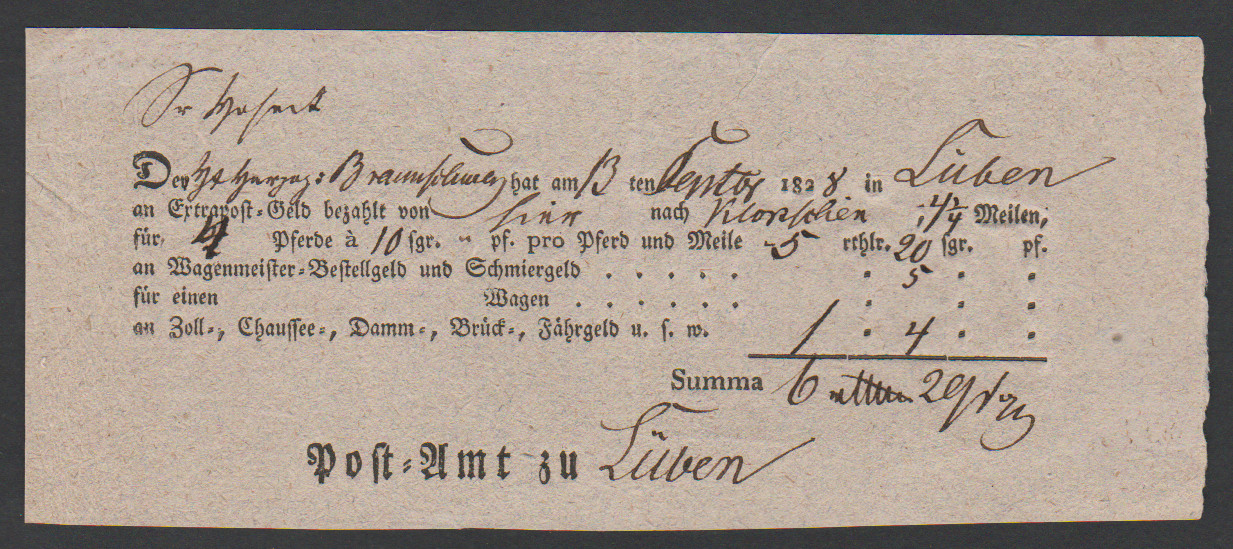 Sr
Der Hr Herzog: Braunschweig hat am 13 ten Septbr 1828 in Lüben
an Extrapost-Geld bezahlt von hier nach Klopschen 4 1/4 Meilen,
für 4 Pferde à 10 sgr. " pf. pro Pferd und Meile 5 rthlr. 20 sgr. pf.
an Wagenmeister-Bestellgeld und Schmiergeld . . . . . " 5 " "
für einen Wagen . . . . . . " " "
an Zoll-, Chaussee-, Damm-, Brück-, Fährgeld u. s. w. 1 " 4 " "
Summa 6 29 sgr
Post-Amt zu Lüben